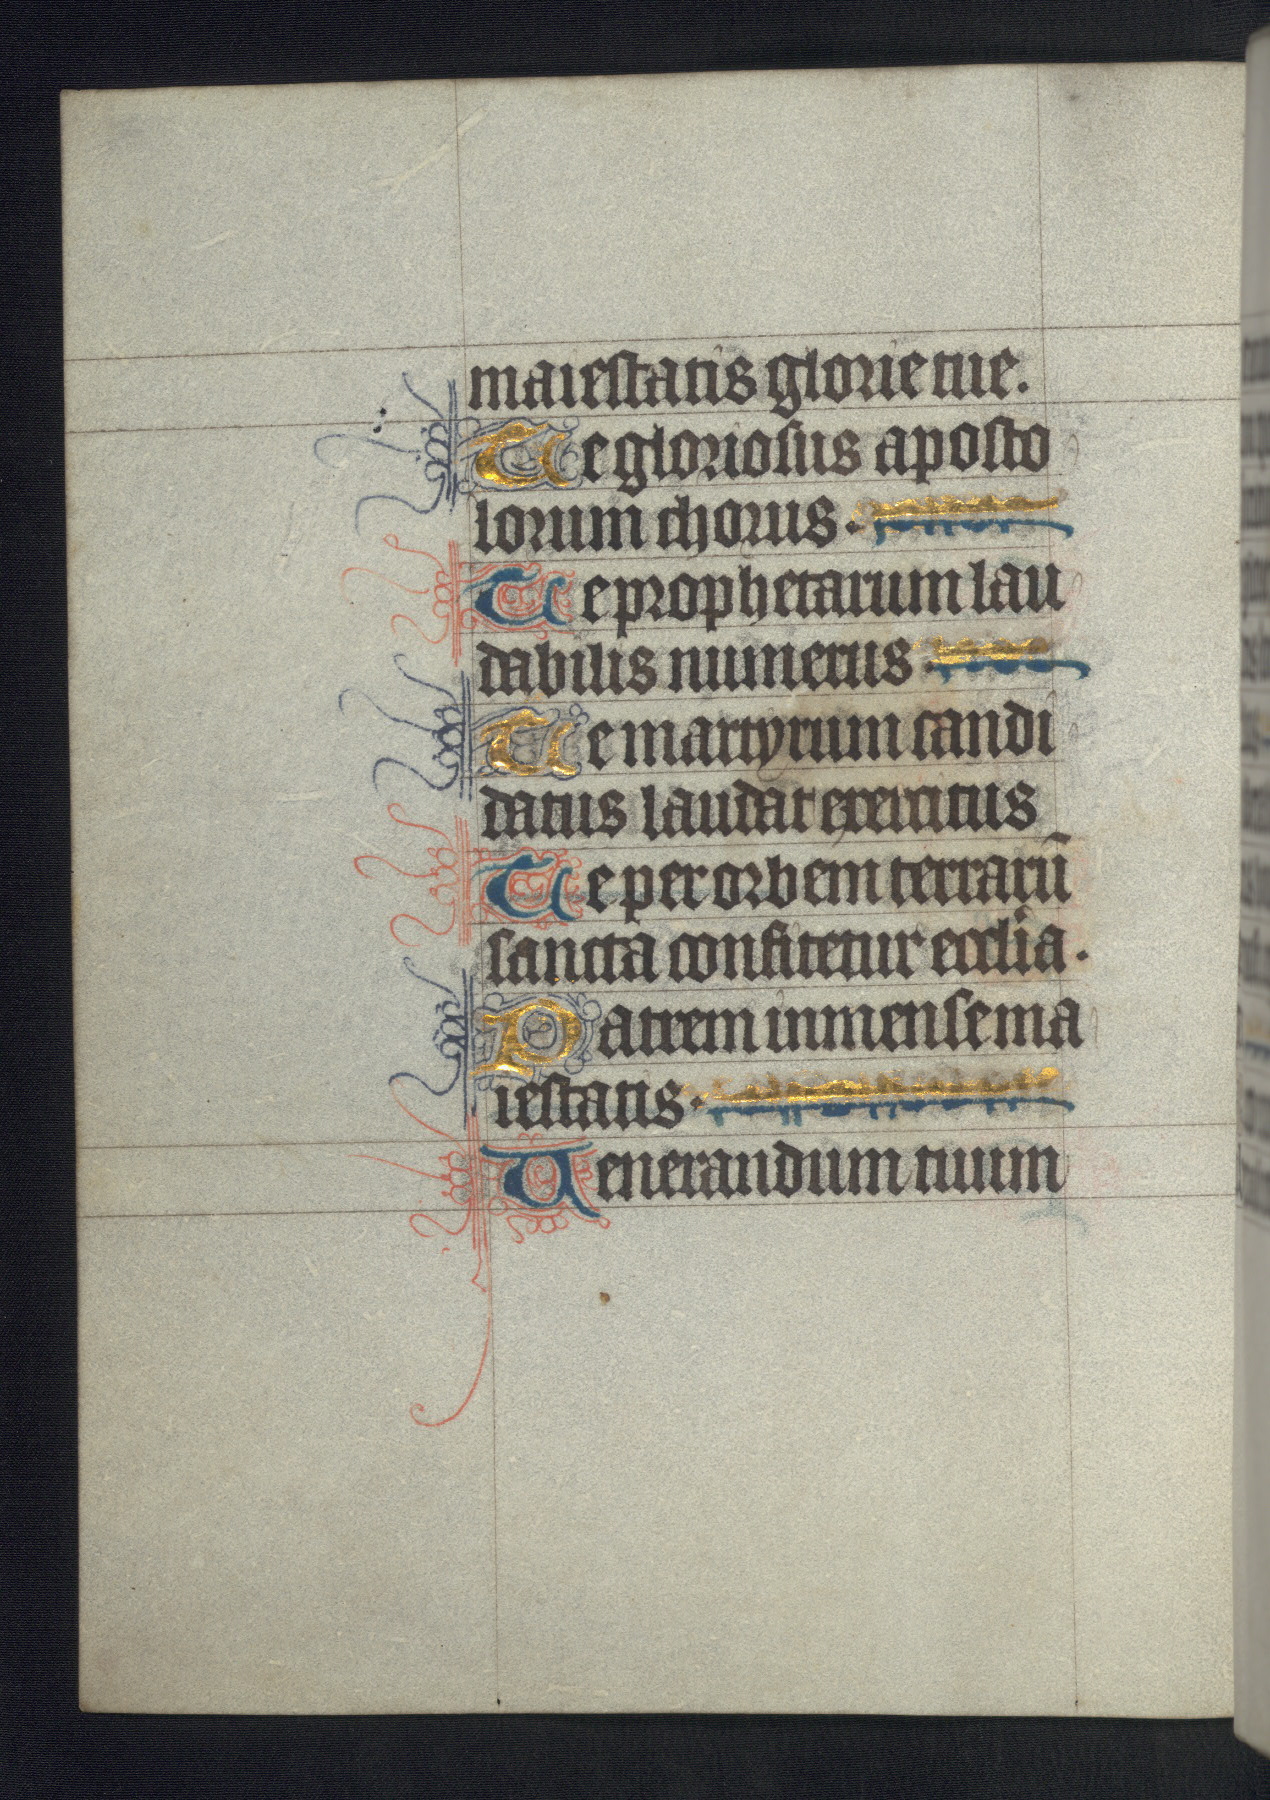 maiestatis glorie tue.
Te gloriosus aposto
lorum chorus.
Te prophetarum lau
dabilis numerus.
Te martyrum candi
datus laudat exercitus
Te per orbem terrarū
sancta confitetur ecclīa.
Patrem inmense ma
iestatis.
Uenerandum tuum